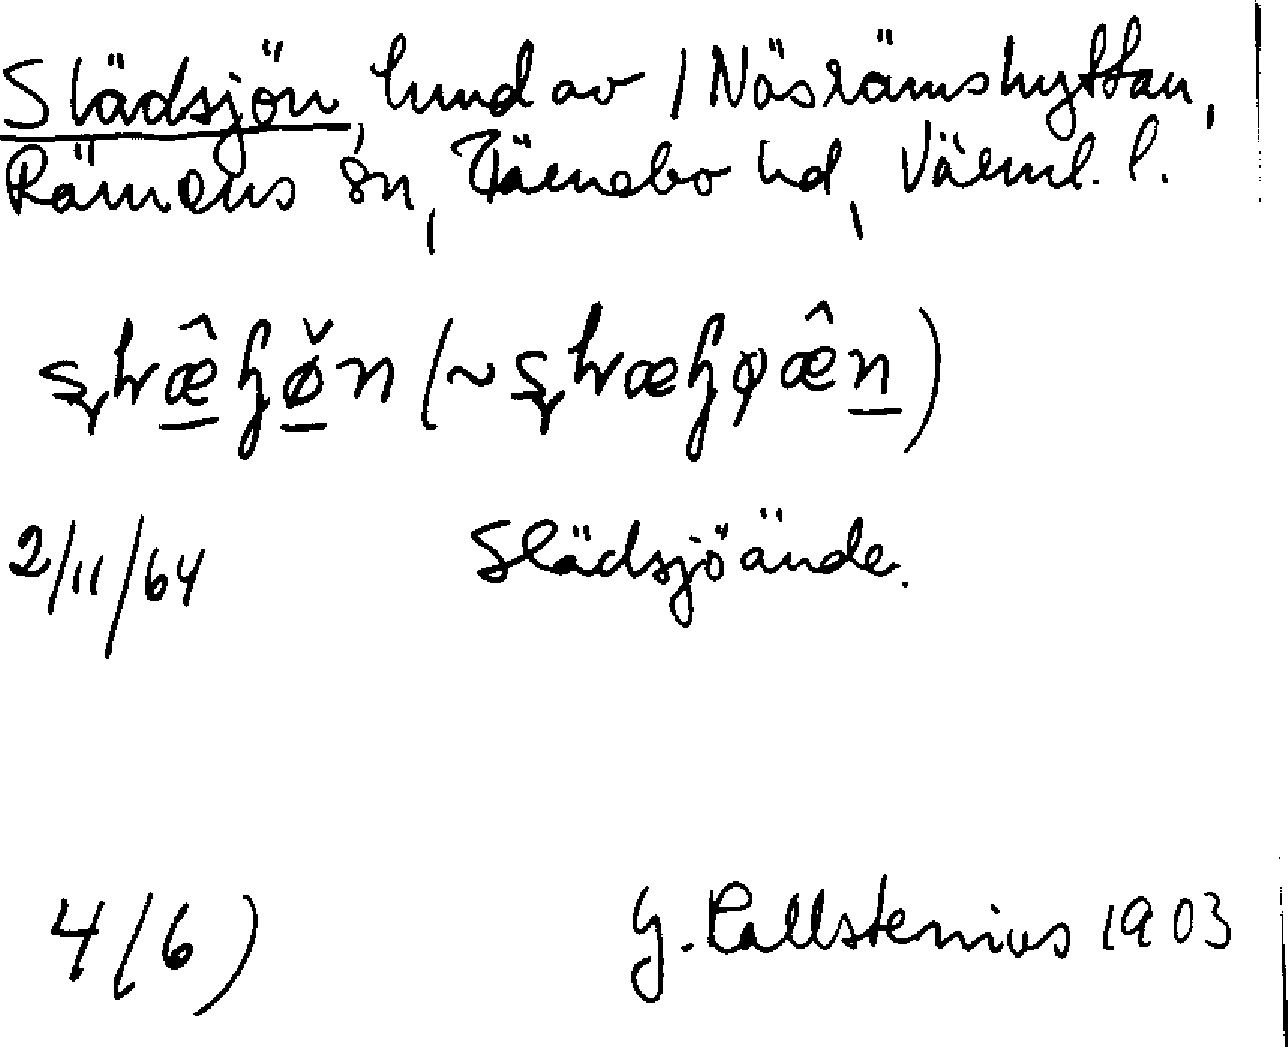 Slädsjön, hmd av / Näsrämshyttan,
Rämens sn, Färnebo hd, Värml. l.
2/11/64 Slädsjöände.
4 (6) G. Kallstenius 1903